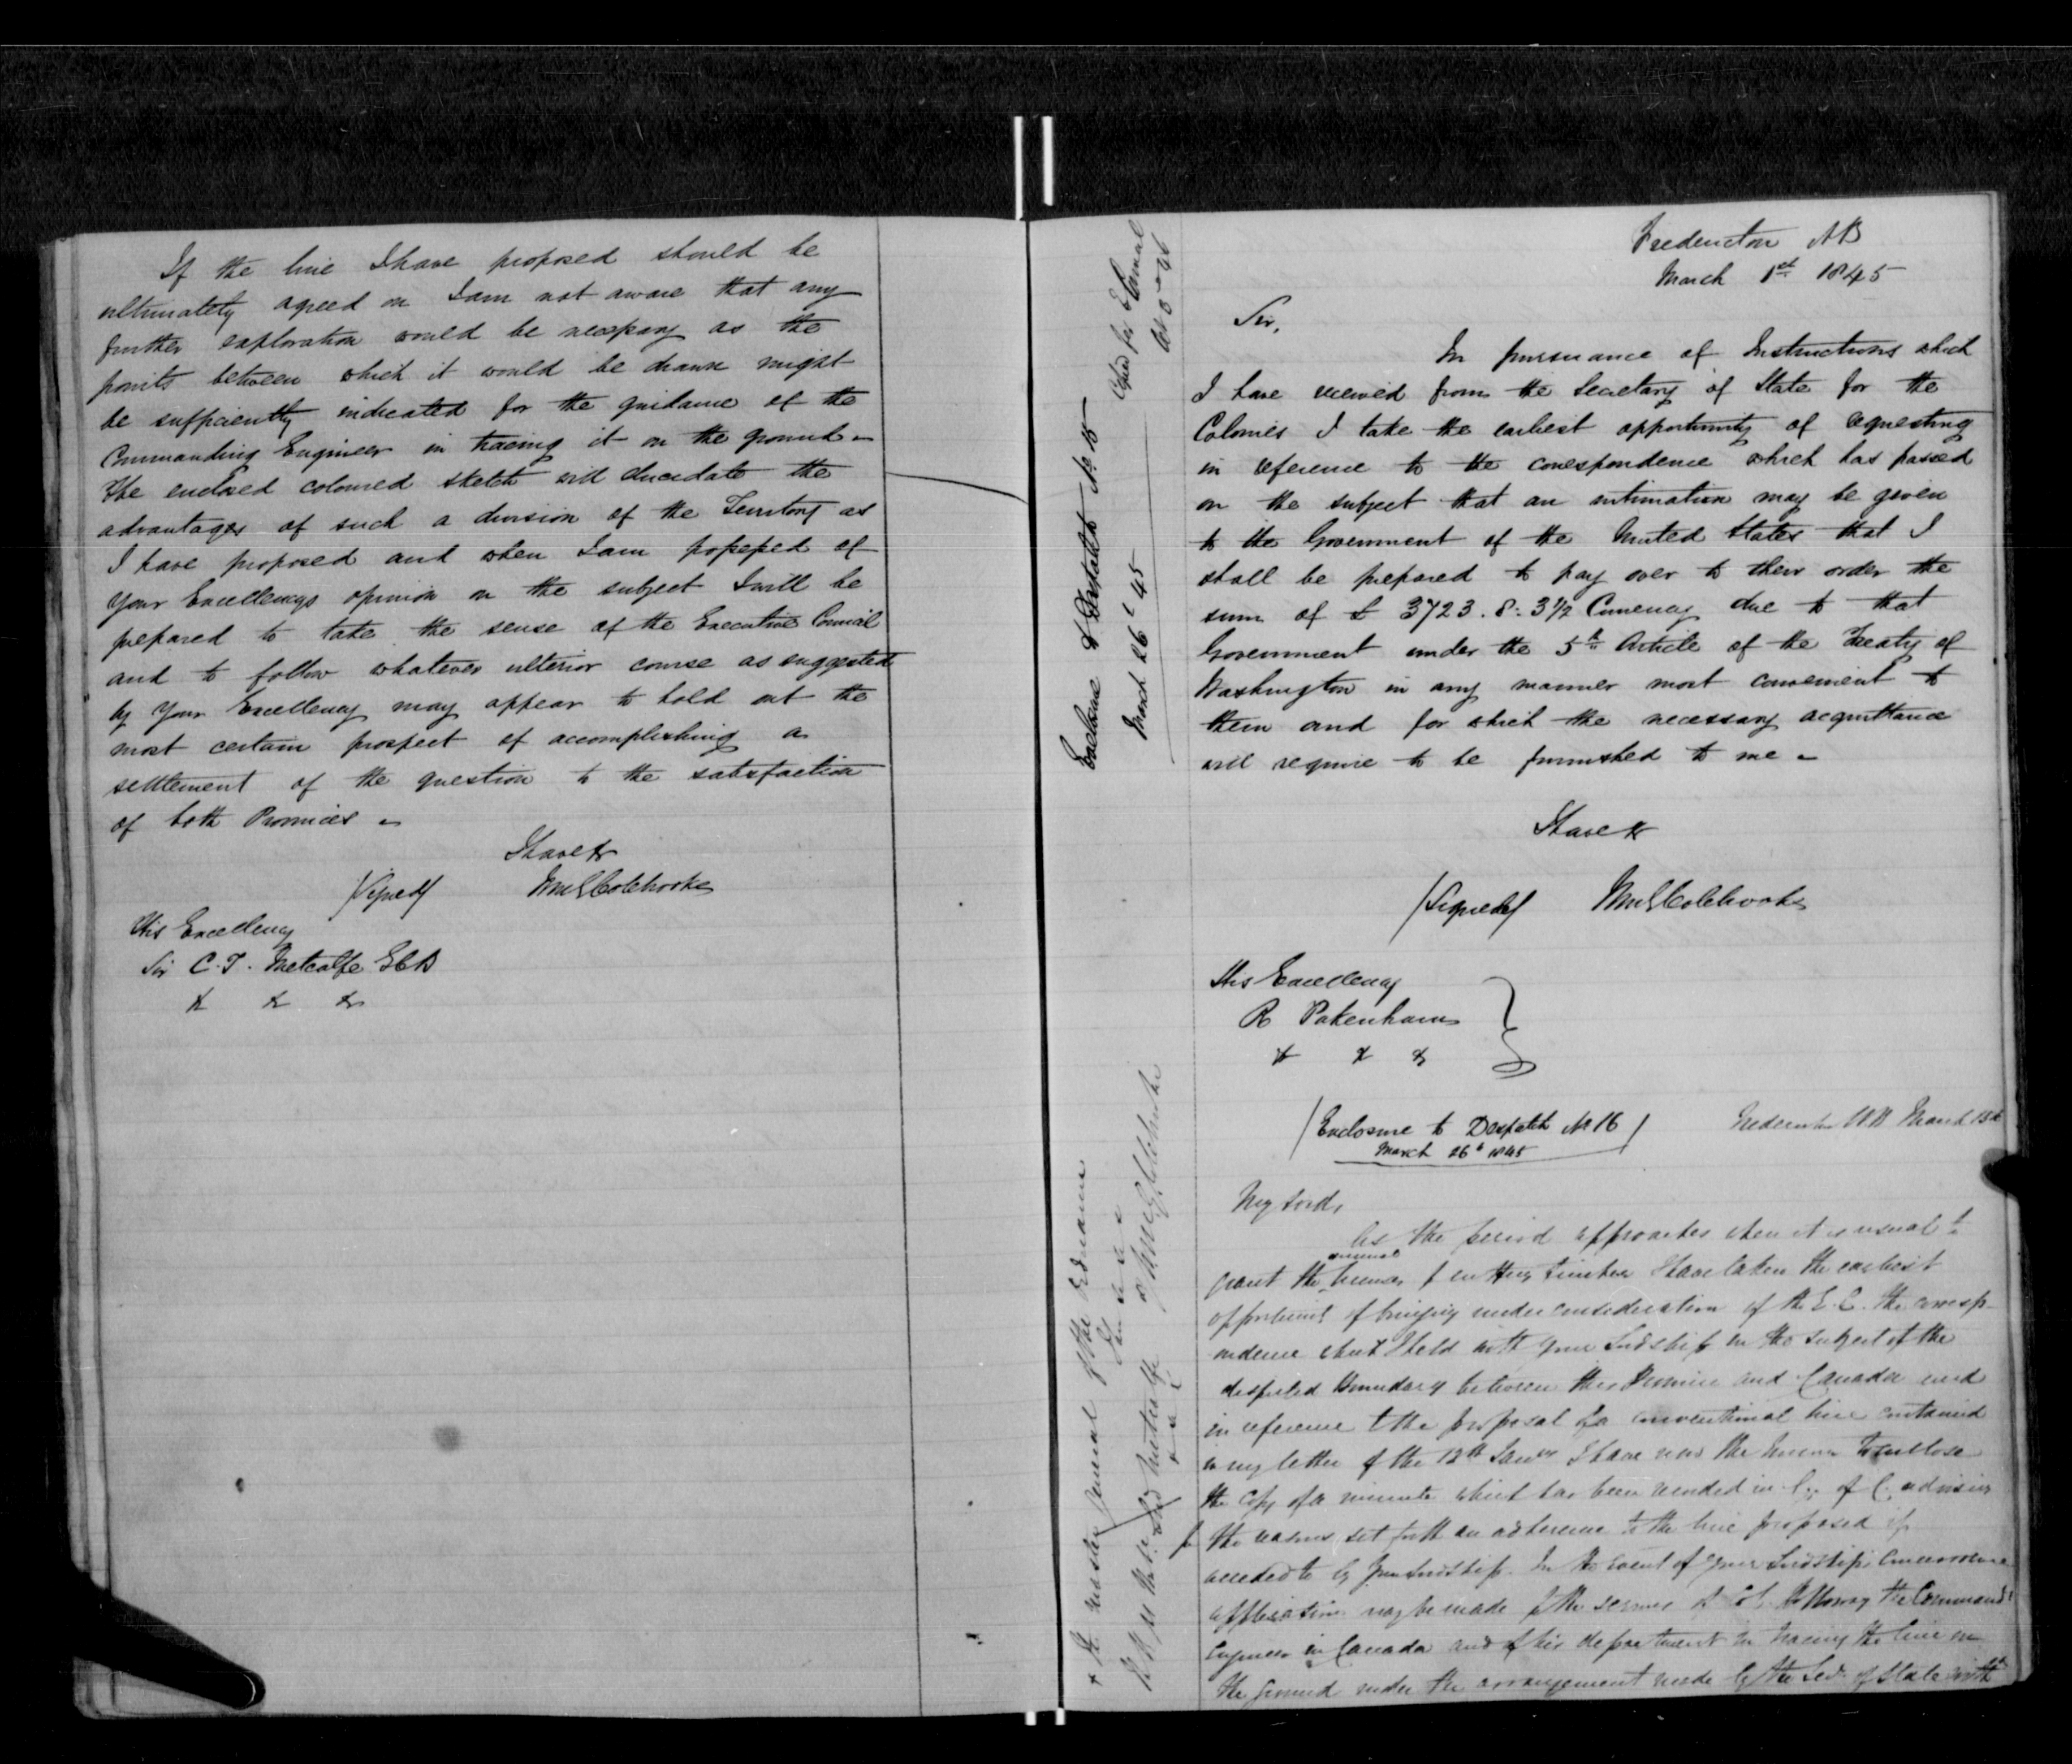 If the line I have proposed should be
ultimately agreed on I am not aware that any
further exploration would be necessary as the
points between which it would be drawn might
be sufficiently indicated for the guidance of the
Commanding Engineer in tracing it on the ground -
The enclosed coloured sketch will elucidate the
advantages of such a division of the Territory as
I have proposed and when I am possessed of
Your Excellencys opinion on the subject I will be
prepared to take the sense of the Executive Council
and to follow whatever ulterior course as suggested
by Your Excellency may appear to hold out the
most certain prospect of accomplishing a
settlement of the question to the satisfaction
of both Provinces -
I have &
(Signed) WmGColebrooke
His Excellency
Sir C. T. Metcalfe GCB
& & &
Enclosure to Despatch No 15
March 26th 45
Copied for E Council
Fredericton NB
March 1st 1845
Sir,
In pursuance of Instructions which
I have received from the Secretary of State for the
Colonies I take the earliest opportunity of requesting
in reference to the correspondence which has passed
on the subject that an intimation may be given
to the Government of the United States that I
shall be prepared to pay over to their order the
sum of £ 3723. 8: 3 1/2 Currency due to that
Government under the 5th Article of the Treaty of
Washington in any manner most convenient to
them and for which the necessary acquittance
will require to be furnished to me -
I have &
(Signed) WmGColebrooke
His Excellency
R Pakenham
& & &
(Enclosure to Despatch No 16)
March 26th 1845
Fredericton NB March 13th
My Lord,
As the period approaches when it is usual to
grant the annual licenses for cutting timber I have taken the earliest
opportunity of bringing under consideration of the E.C. the corresp-
ondence which I held with your Lordship on the subject of the
disputed Boundary between this Province and Canada and
in reference to the proposal of a conventional line contained
in my letter of the 12th Jany I have now the honor to enclose
the copy of a minute which has been recorded in Cy of C. advising
for the reasons set forth an adherence to the line proposed if
acceded to by your Lordship. In the event of your Lordships concurrence
application may be made for the services of Col. Holloway the Commandg
Engineer in Canada and of his department in tracing the line on
the ground under the arrangement made by the Secy of State with
+ the Master General of the Ordnance
I have &
(Signed) WmGColebrooke
Lord Metcalfe
& & &